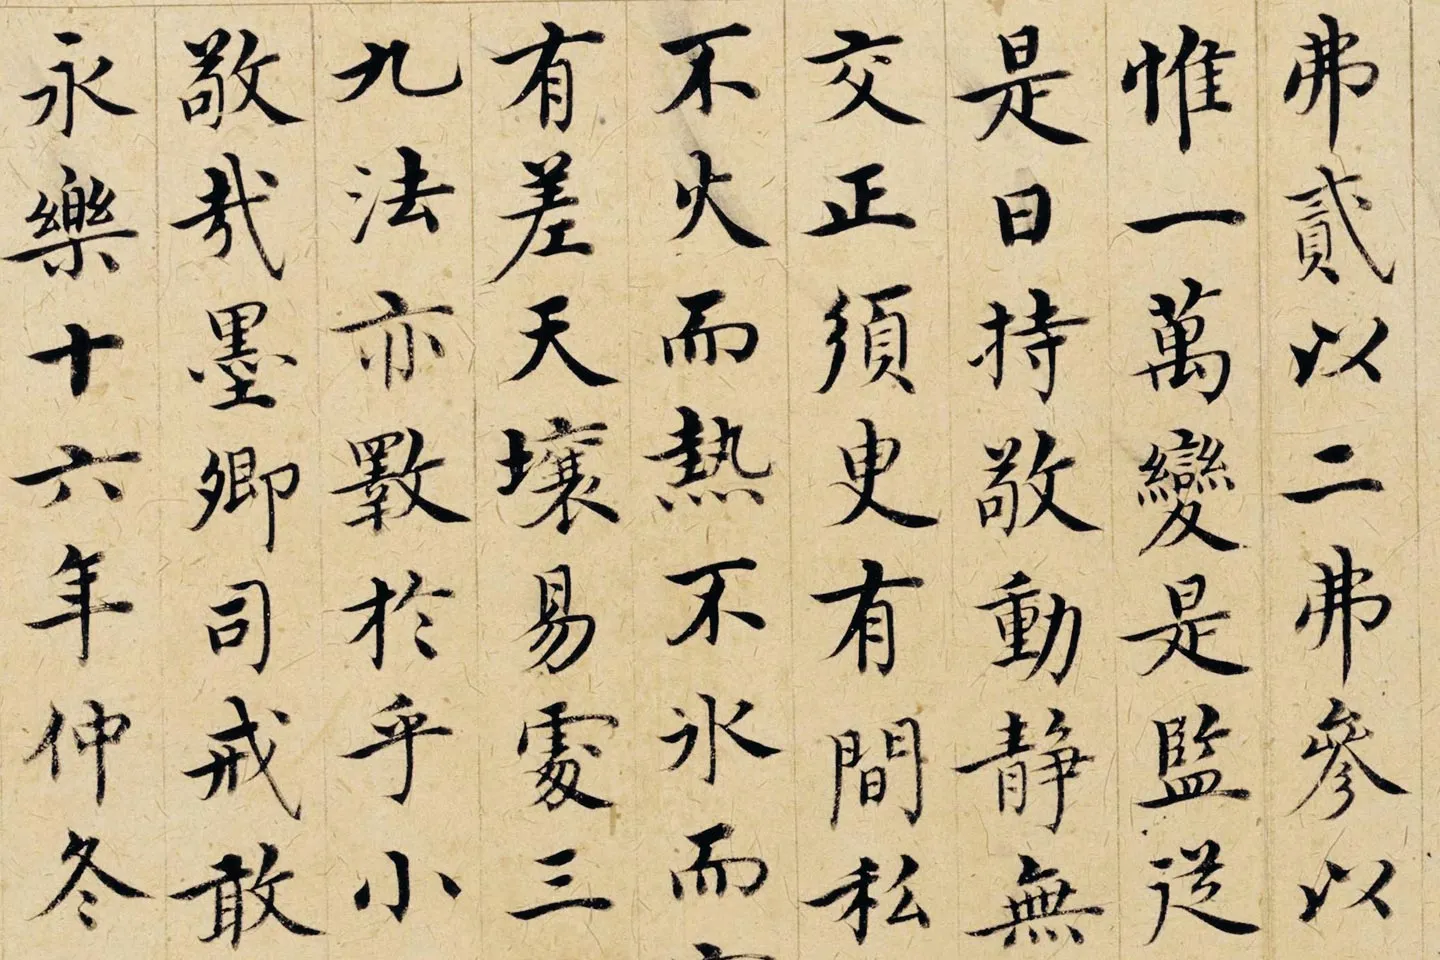 弗貳以二弗參以
惟一萬變是監從
是曰持敬動靜無
交正須臾有間私
不火而熱不氷而
有差天壤易處三
九法亦斁於乎小
敬哉墨卿司戒敢
永樂十六年仲冬